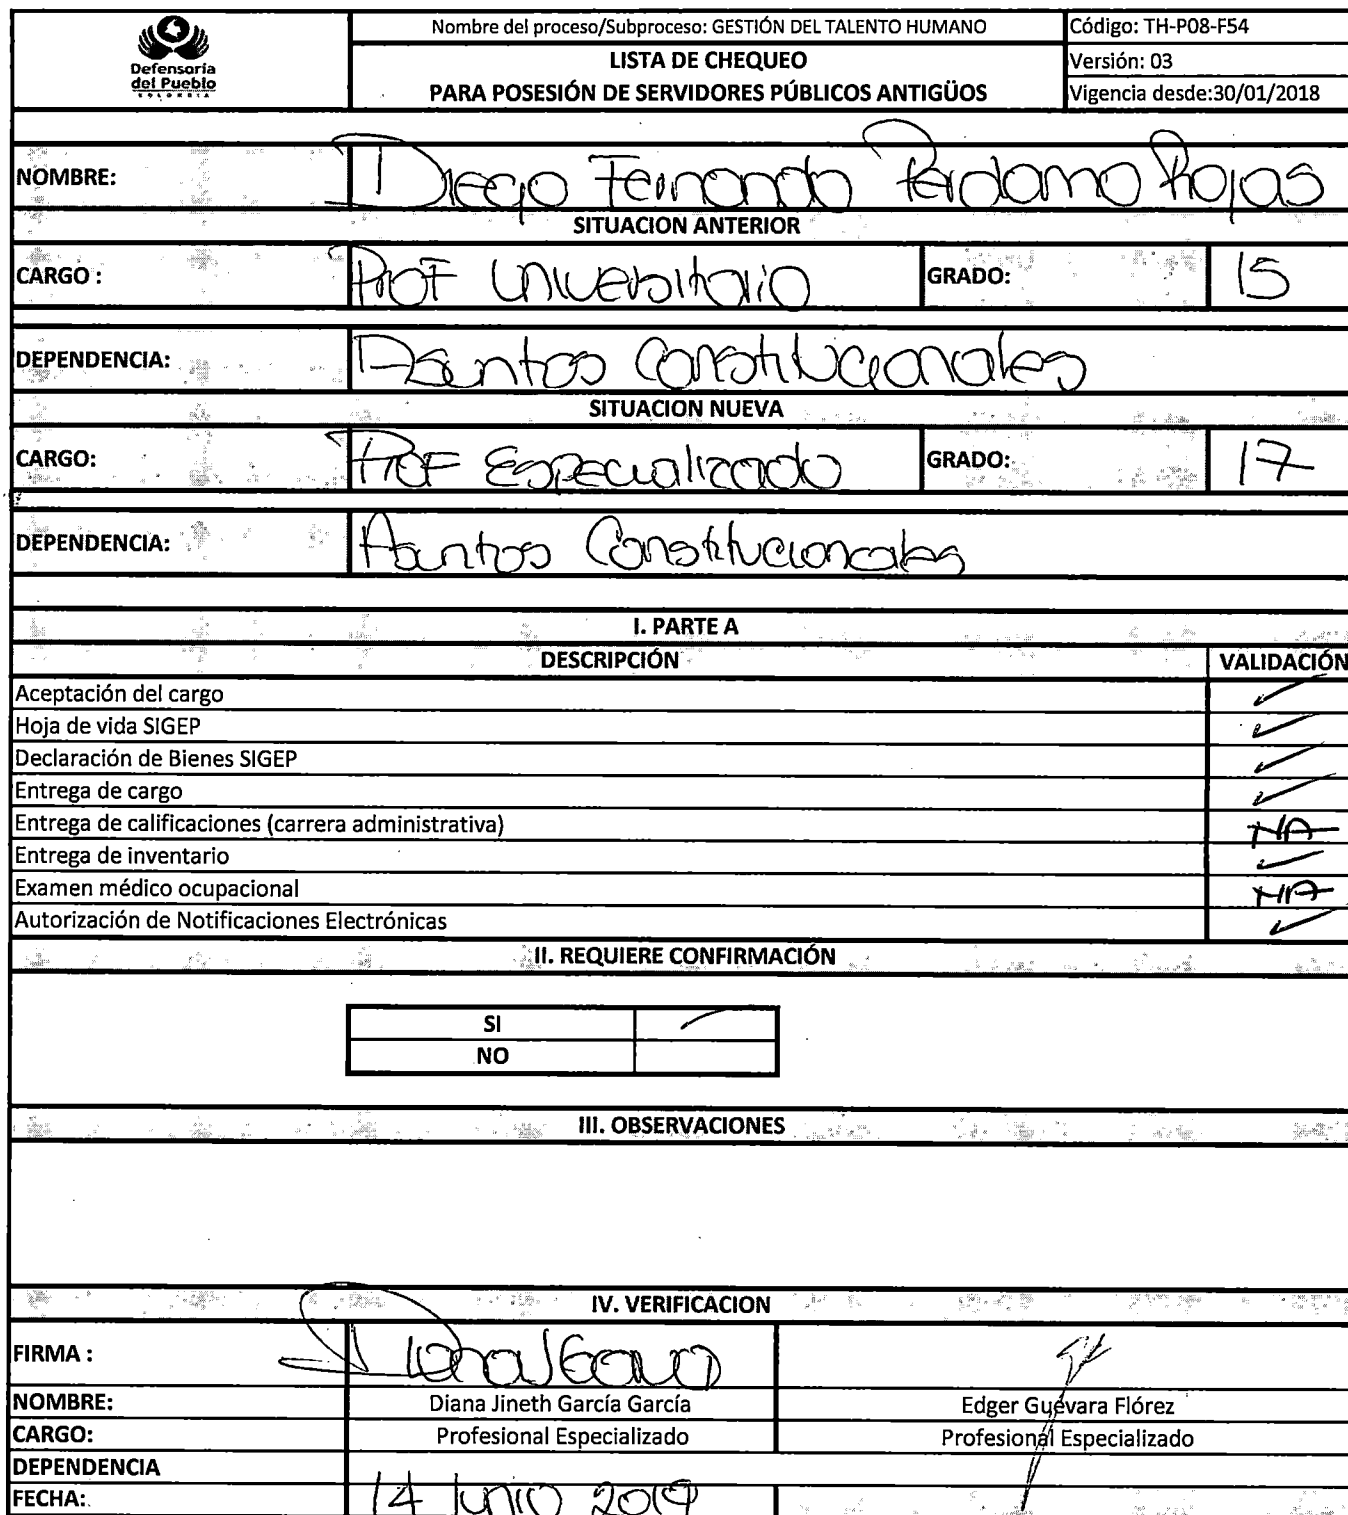 Defensoría
del Pueblo
COLOMBIA
Nombre del proceso/Subproceso: GESTIÓN DEL TALENTO HUMANO
Código: TH-P08-F54
LISTA DE CHEQUEO
PARA POSESIÓN DE SERVIDORES PÚBLICOS ANTIGÜOS
Versión: 03
Vigencia desde:30/01/2018
NOMBRE: Diego Fernando Perdomo Rojas
SITUACION ANTERIOR
CARGO : Prof Universitario GRADO: 15
DEPENDENCIA: Asuntos Constitucionales
SITUACION NUEVA
CARGO: Prof Especializado GRADO: 17
DEPENDENCIA: Asuntos Constitucionales
I. PARTE A
DESCRIPCIÓN VALIDACIÓN
Aceptación del cargo ✓
Hoja de vida SIGEP ✓
Declaración de Bienes SIGEP ✓
Entrega de cargo ✓
Entrega de calificaciones (carrera administrativa) NA
Entrega de inventario ✓
Examen médico ocupacional NA
Autorización de Notificaciones Electrónicas ✓
II. REQUIERE CONFIRMACIÓN
SI ✓
NO
III. OBSERVACIONES
IV. VERIFICACION
FIRMA :
NOMBRE: Diana Jineth García García Edger Guevara Flórez
CARGO: Profesional Especializado Profesional Especializado
DEPENDENCIA
FECHA: 14 Junio 2019